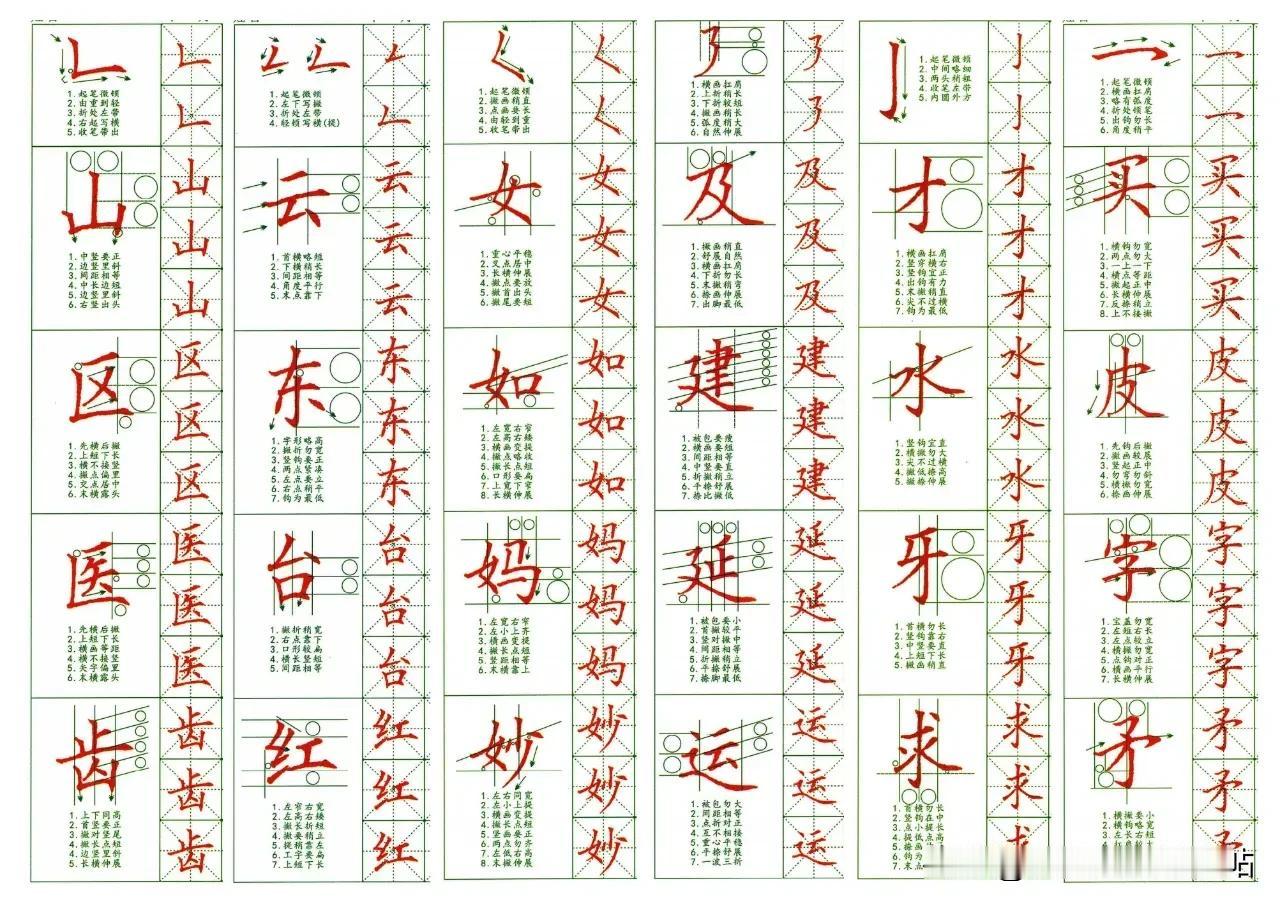 1. 起笔微顿
2. 由重到轻
3. 折处左带
4. 右起写横
5. 收笔带出
山
山
山
山
1. 中竖要正
2. 边竖里斜
3. 间距相等
4. 中长边短
5. 边竖里斜
6. 右竖出头
区
区
区
区
1. 先横后撇
2. 上短下长
3. 横不接竖
4. 撇点偏里
5. 交点居中
6. 末横露头
医
医
医
医
1. 先横后撇
2. 上短下长
3. 横画等距
4. 横不接竖
5. 矢字偏里
6. 末横露头
齿
齿
齿
齿
1. 上下同高
2. 首竖要正
3. 撇对竖尾
4. 撇长点短
4. 边竖里斜
5. 长横伸展
1. 起笔微顿
2. 左下写撇
3. 折处左带
4. 轻顿写横(提)
云
云
云
云
1. 首横略短
2. 下横稍长
3. 间距相等
4. 角度平行
5. 末点靠下
东
东
东
东
1. 字形略高
2. 撇折勿宽
3. 竖钩要正
4. 两点紧凑
5. 左点要立
6. 右点稍平
7. 钩为最低
台
台
台
台
1. 撇折稍宽
2. 右点靠下
3. 口形较扁
4. 横长竖短
5. 间距相等
红
红
红
红
1. 左窄右宽
2. 左高右矮
3. 撇长折短
4. 撇要稍立
5. 提稍靠左
6. 工字要扁
7. 上短下长
1. 起笔微顿
2. 撇画稍直
3. 点画要长
4. 由轻到重
5. 收笔带出
女
女
女
女
1. 重心平稳
2. 叉点居中
3. 长横伸展
4. 撇点要放
5. 撇首出头
6. 撇尾要短
如
如
如
如
1. 左宽右窄
2. 左高右矮
3. 横画变提
4. 撇点略收
5. 撇长点短
6. 口形要扁
7. 上宽下窄
8. 长横伸展
妈
妈
妈
妈
1. 左宽右窄
2. 左小上齐
3. 横画变提
4. 撇长点短
5. 竖距相等
6. 末横靠上
妙
妙
妙
妙
1. 左右同宽
2. 左小上提
3. 横画变提
4. 撇长点短
5. 竖画要正
6. 两点勿齐
7. 左低右高
8. 末撇伸展
1. 横画扛肩
2. 上折稍长
3. 下折较短
4. 撇画稍长
5. 弧度稍大
6. 自然伸展
及
及
及
及
1. 撇画稍直
2. 舒展自然
3. 横画扛肩
4. 下折勿长
5. 末撇稍弯
6. 捺画伸展
7. 出脚最低
建
建
建
建
1. 被包要瘦
2. 横画要短
3. 间距相等
4. 中竖要直
5. 折撇稍立
6. 平捺舒展
7. 捺比撇低
延
延
延
延
1. 被包要小
2. 首撇较平
3. 竖对撇中
4. 间距相等
5. 折撇稍立
6. 平捺舒展
7. 捺脚最低
运
运
运
运
1. 被包勿大
2. 间距相等
3. 点折对正
4. 互不相接
5. 重心平稳
6. 平捺舒展
7. 一波三折
1. 起笔微顿
2. 中间略细
3. 两头稍粗
4. 收笔左带
5. 内圆外方
才
才
才
才
1. 横画扛肩
2. 竖穿横右
3. 竖钩宜正
4. 出钩有力
5. 末撇稍直
6. 尖不过横
7. 钩为最低
水
水
水
水
1. 竖钩宜直
2. 横撇勿大
3. 尖不过横
4. 撇低捺高
5. 撇捺伸展
牙
牙
牙
牙
1. 首横勿长
2. 竖钩靠右
3. 中竖要立
4. 上短下长
5. 撇画稍直
求
求
求
1. 首横勿长
2. 竖钩在中
3. 点小提长
4. 提低点高
5. 捺画
6. 钩为
7. 末点
1. 起笔微顿
2. 横画扛肩
3. 略有弧度
4. 折处顿笔
5. 出钩勿长
6. 角度稍平
买
买
买
买
1. 横钩勿宽
2. 两点勿大
3. 一上一下
4. 横点等距
5. 撇起正中
6. 长横伸展
7. 反捺稍立
8. 上不接撇
皮
皮
皮
皮
1. 先钩后撇
2. 撇画较展
3. 竖起正中
4. 勿弯勿斜
5. 横撇勿宽
6. 捺画伸展
字
字
字
字
1. 宝盖勿宽
2. 左短右长
3. 横撇勿宽
5. 点钩对正
6. 横画平行
7. 长横伸展
矛
矛
矛
1. 横撇要小
2. 横钩略宽
3. 左长右短